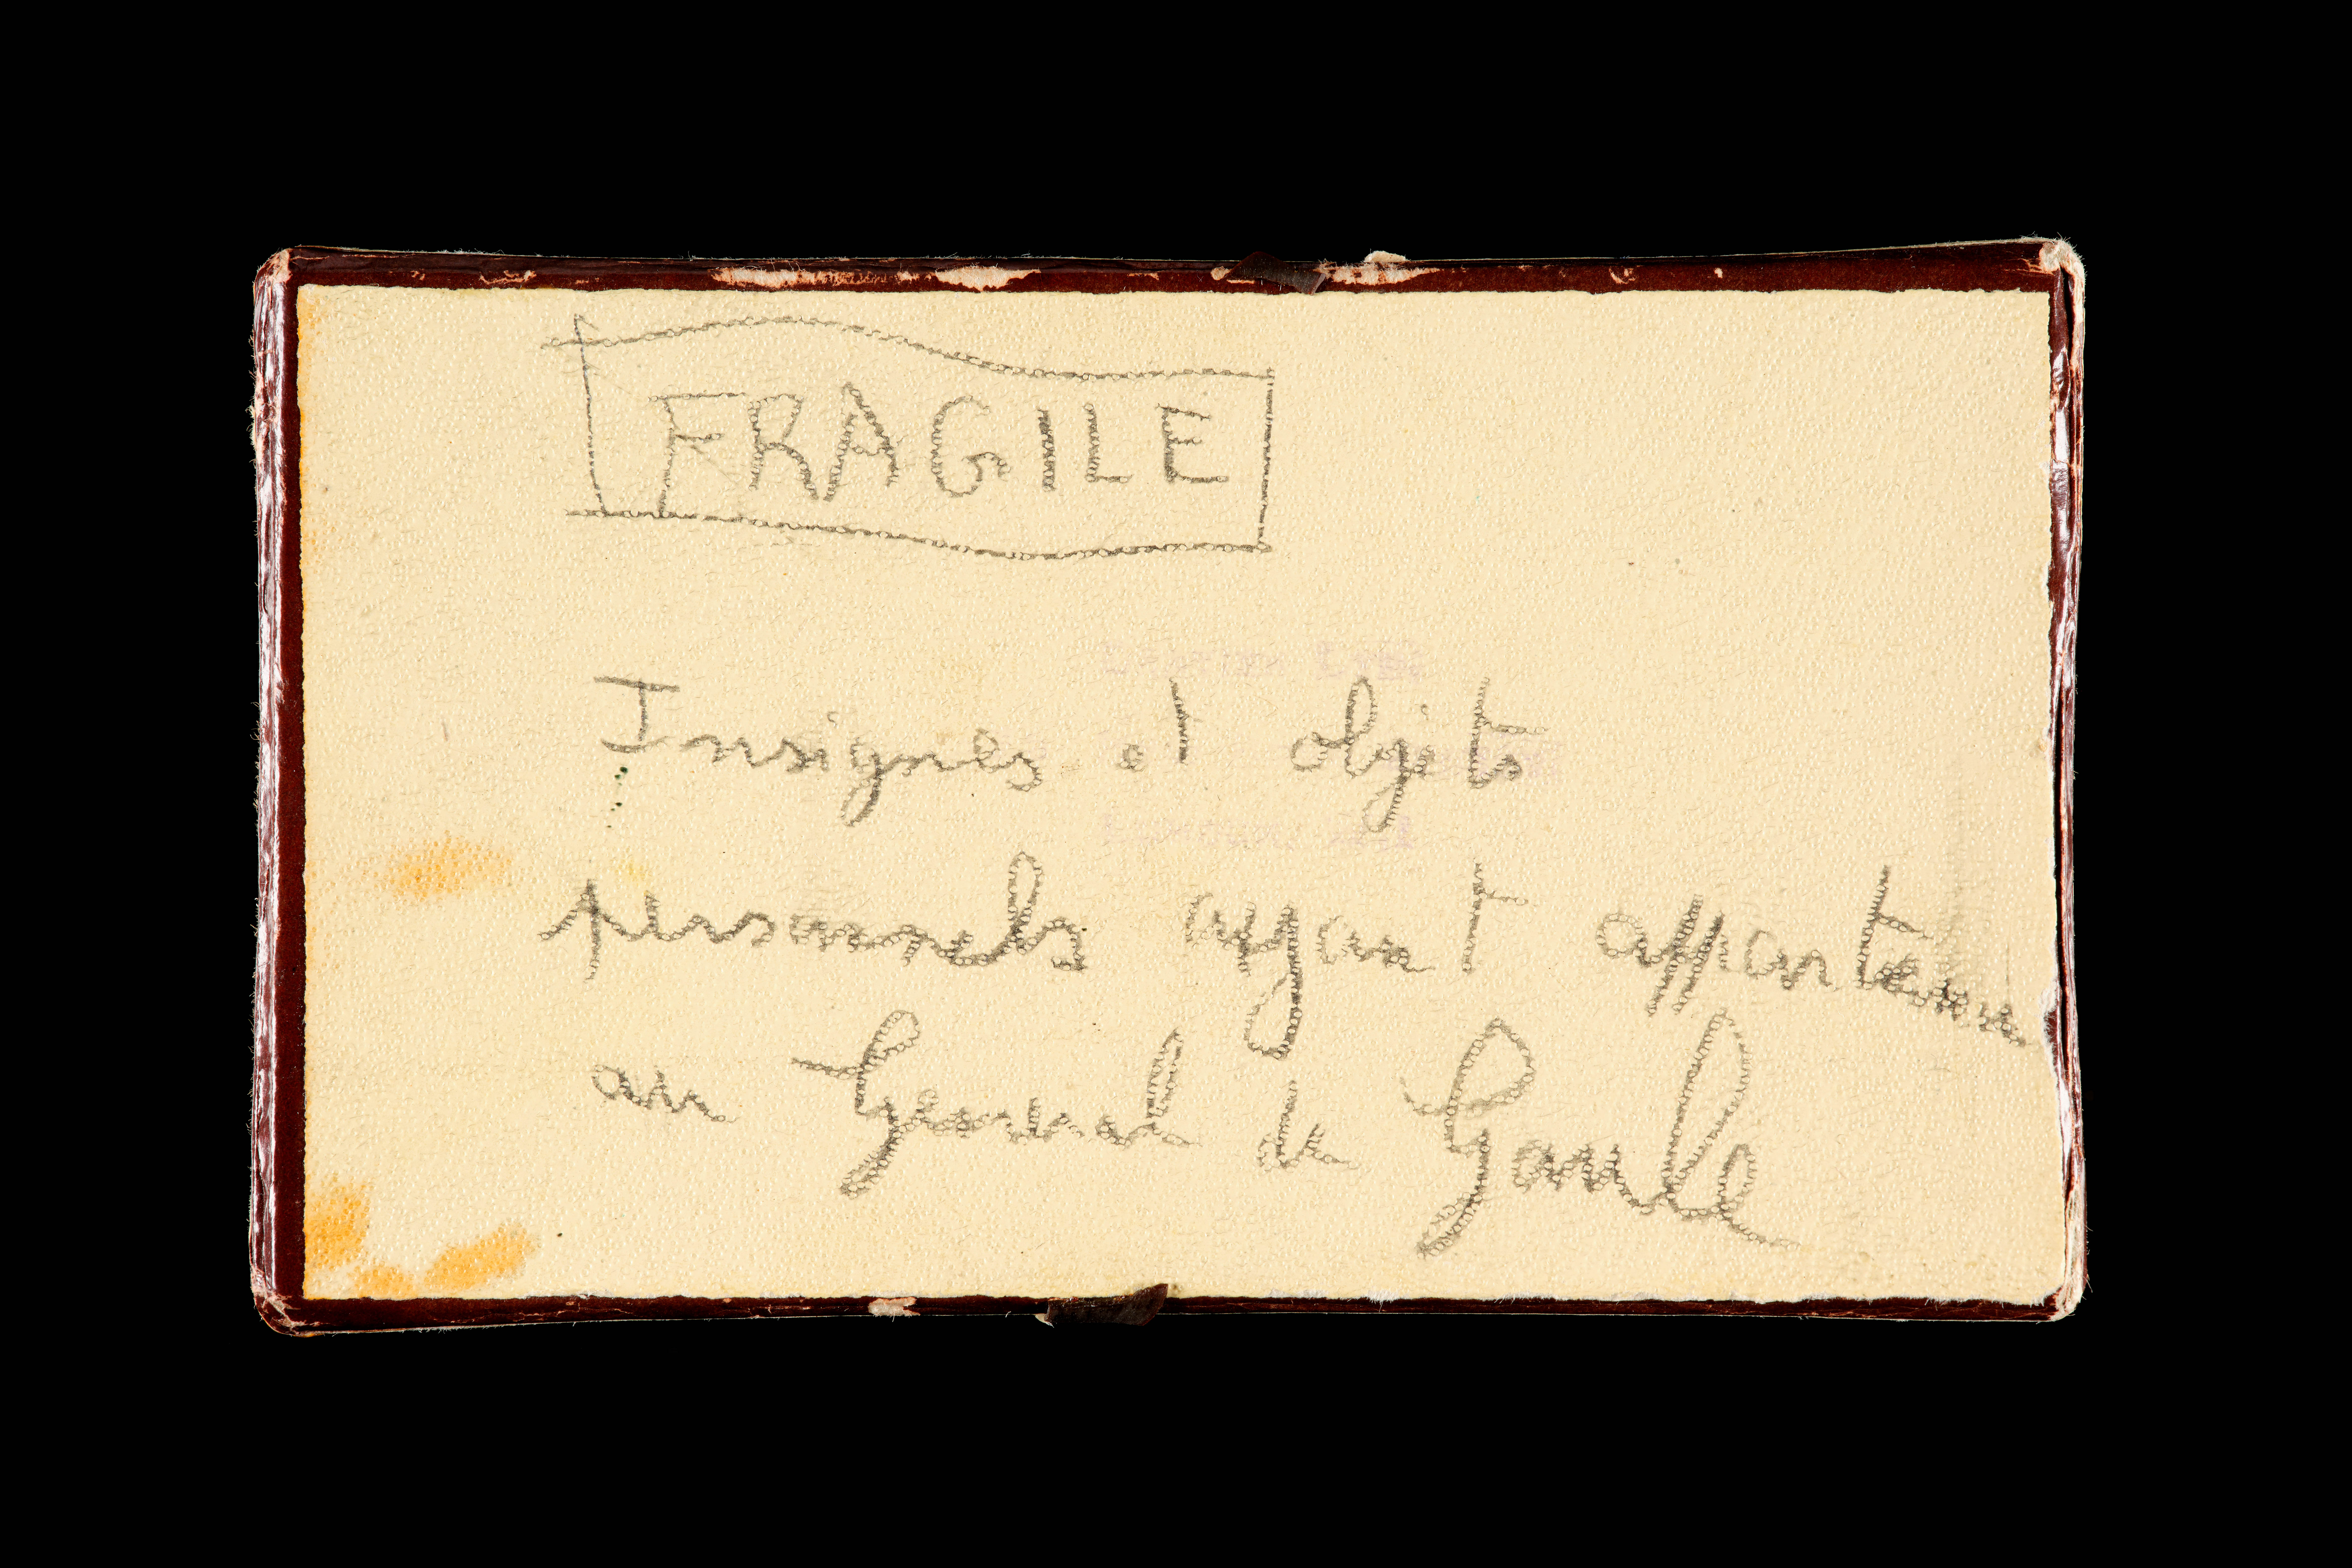 FRAGILE
Insignes et objets
personnels ayant appartenu
au General de Gaulle